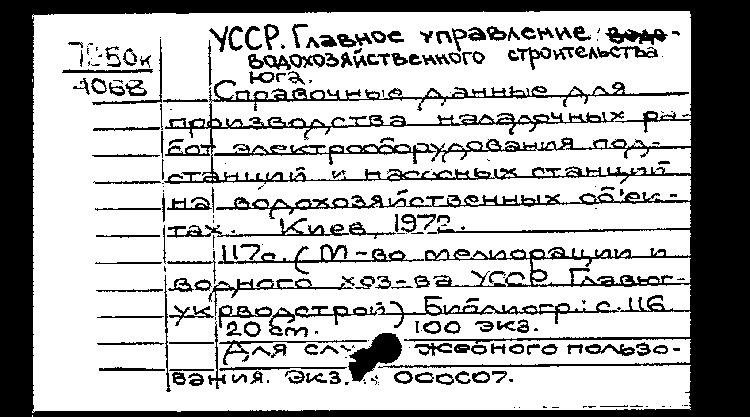 УССР. Главное управление водо-
водохозяйственного строительства
юга.
4068
Справочные данные для
производства наладочных ра-
бот электрооборудования под-
станций и насосных станций
на водохозяйственных об'ек-
тах. Киев, 1972.
117с. (М-во мелиорации и
водного хоз-ва УССР. Главюг-
укрводстрой) Библиогр.: с. 116
20 см. 100 экз.
Для служебного пользо-
вания. Экз. 000007.